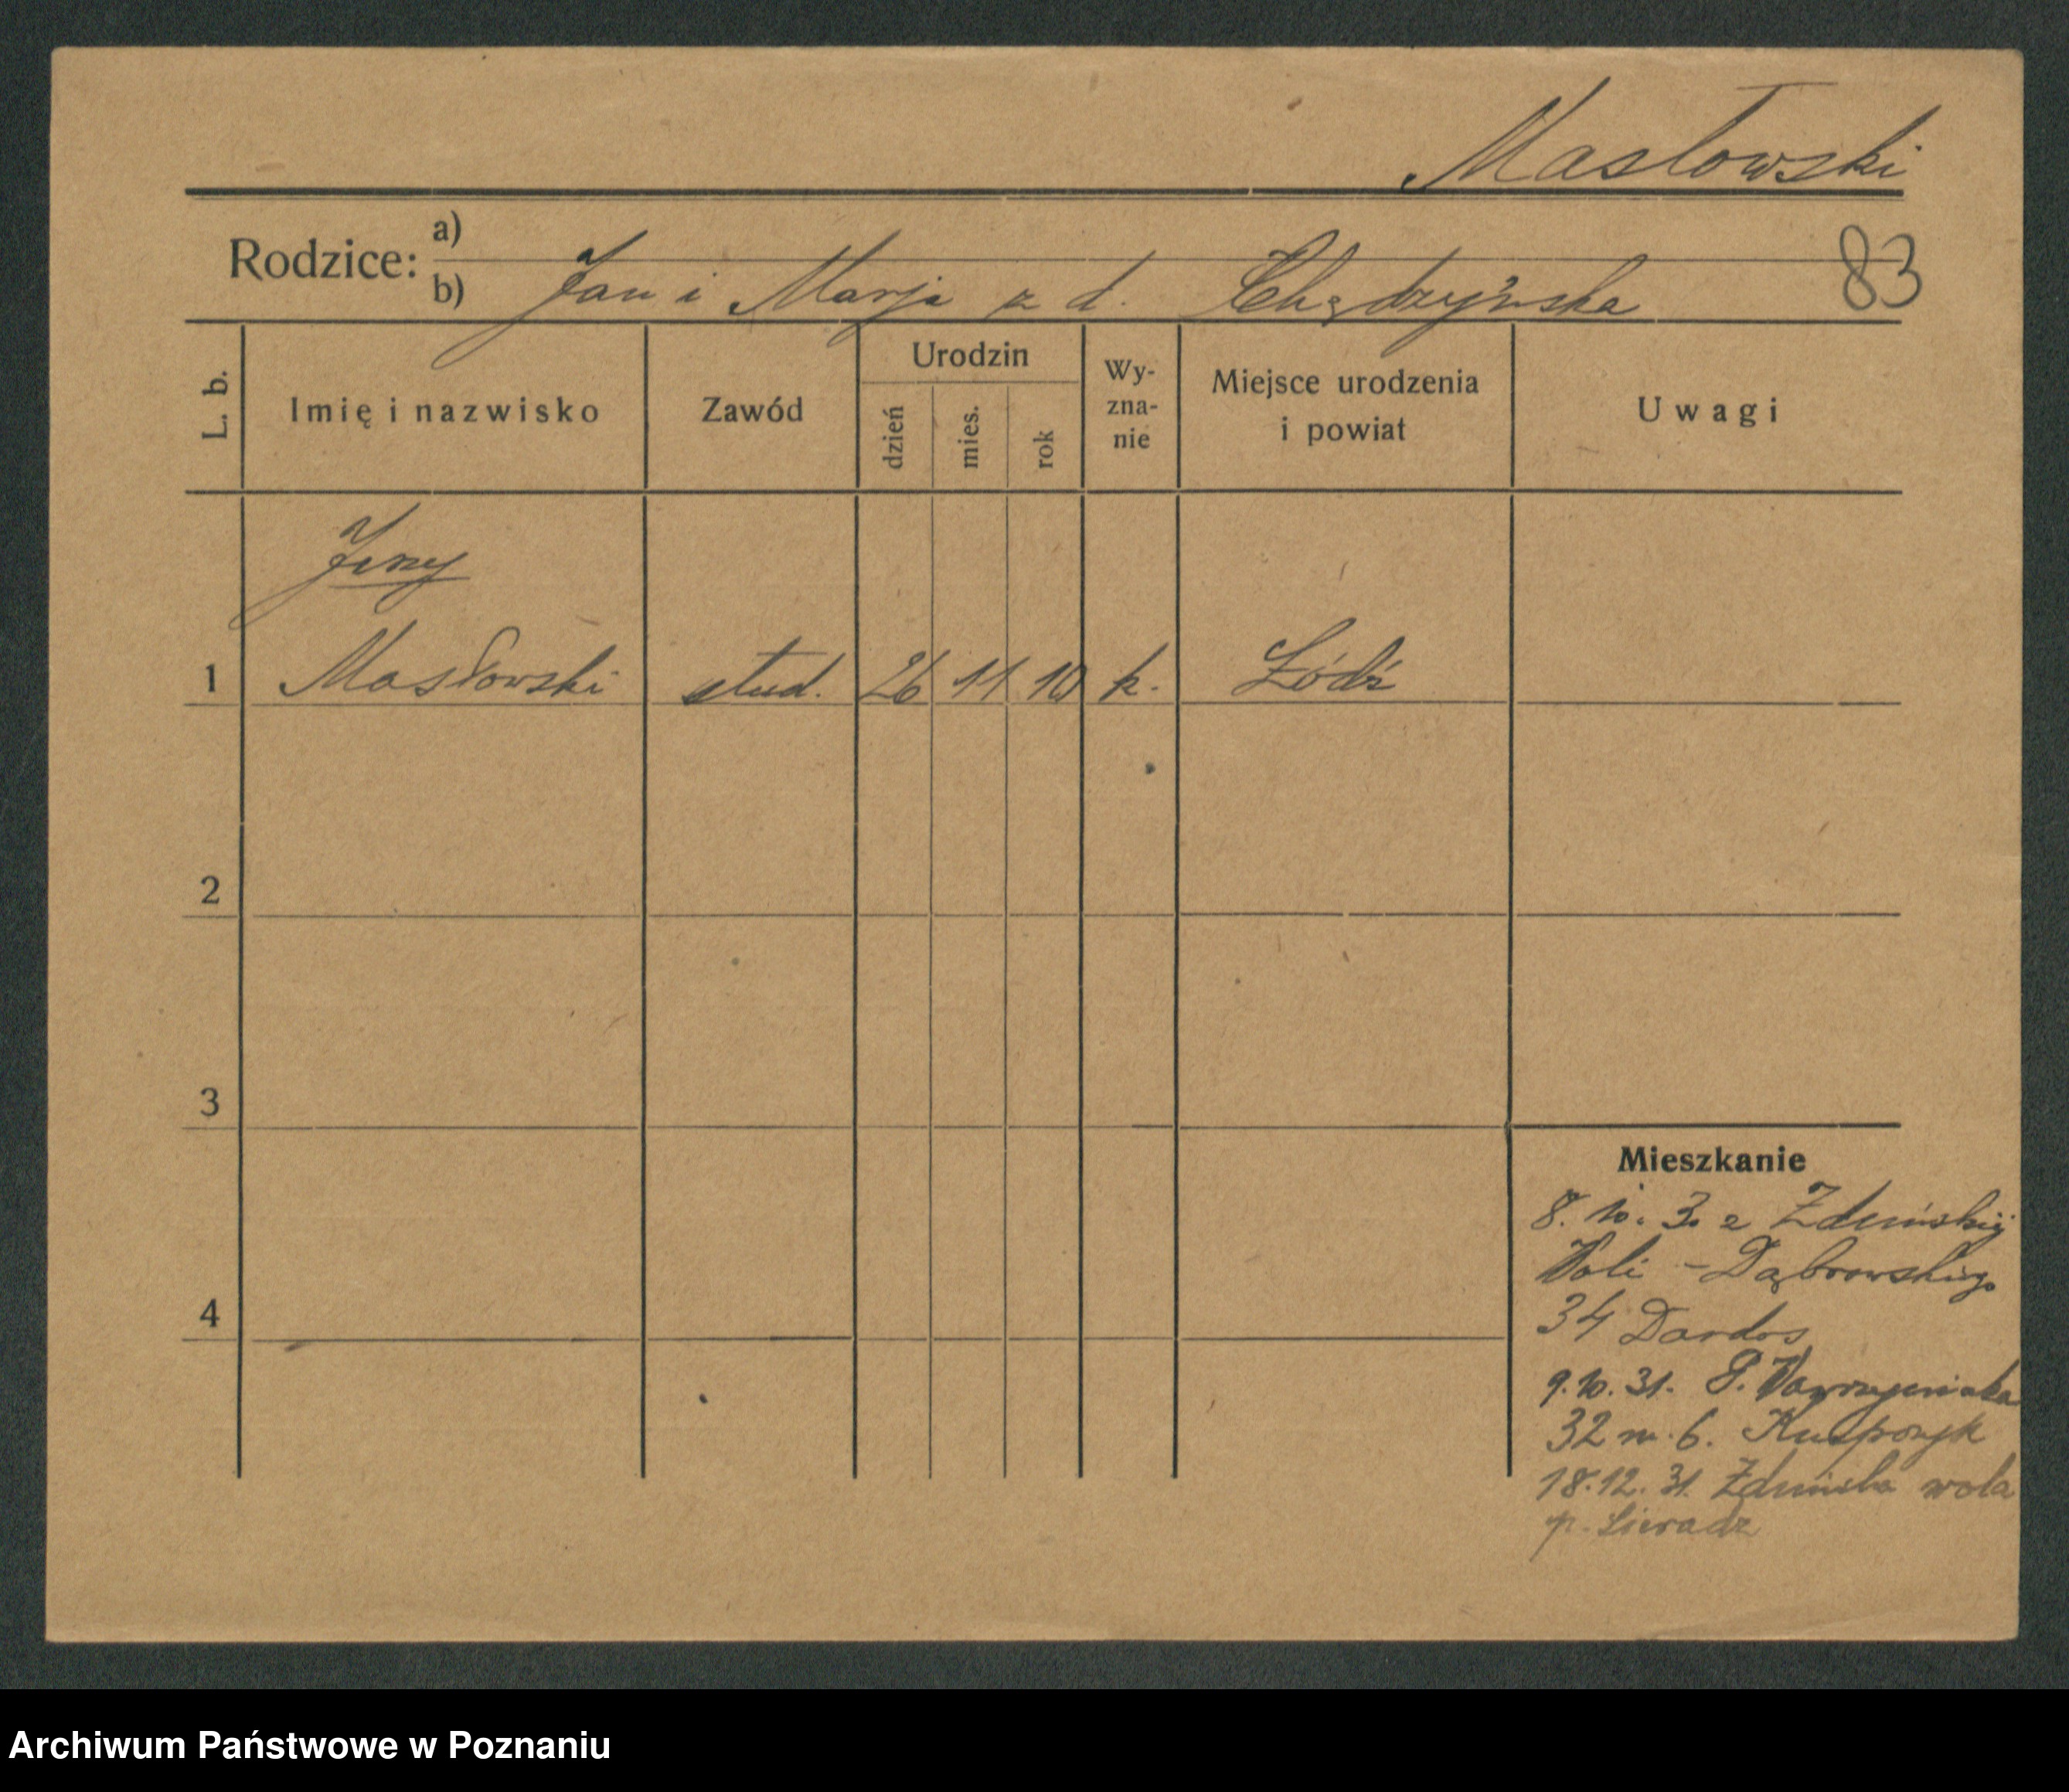 Masłowski
Rodzice: a)
b) Jan i Marja z d. Chędzyńska
83
L. b.
Imię i nazwisko
Zawód
Urodzin
dzień
mies.
rok
Wy-
zna-
nie
Miejsce urodzenia
i powiat
Uwagi
Jerzy
1 Masłowski stud. 26 11 10 k. Łódź
2
3
4
Mieszkanie
8. 10. 3. z Zduńskiej
Woli - Dąbrowskiego
34 Dardos
9.10.31. P. Wawrzyniaka
32 m. 6. Kasprzyk
18.12.31. Zduńska wola
p. Sieradz
Archiwum Państwowe w Poznaniu